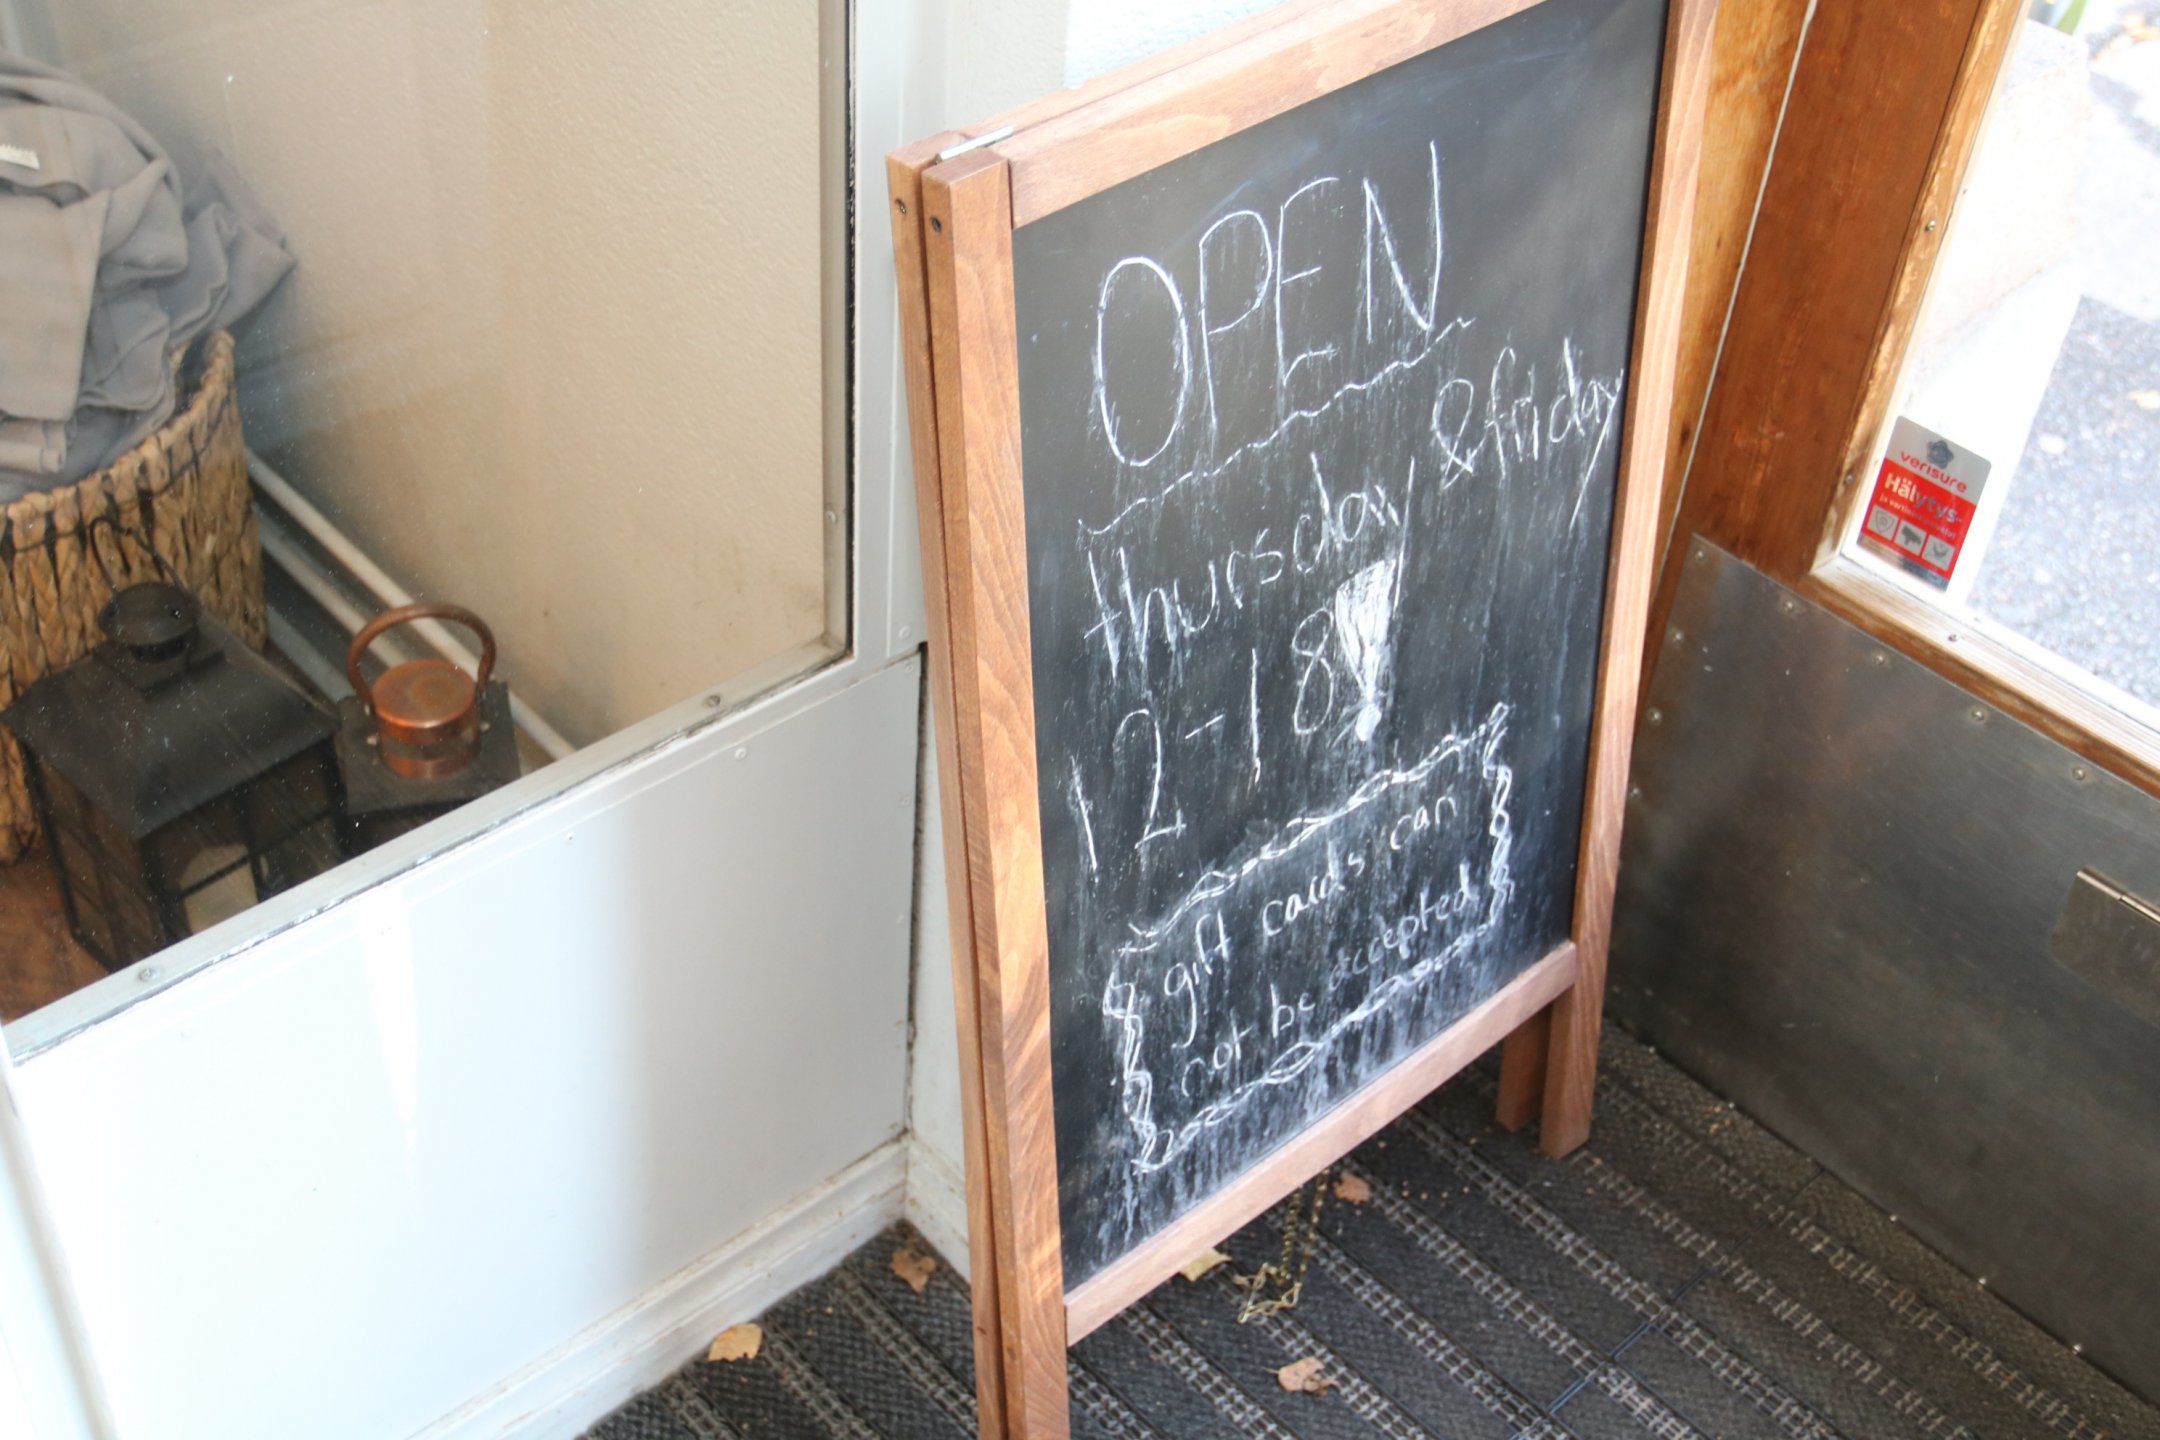 OPEN
thursday & friday
12-18
gift cards can
not be accepted
verisure
Hälytys-